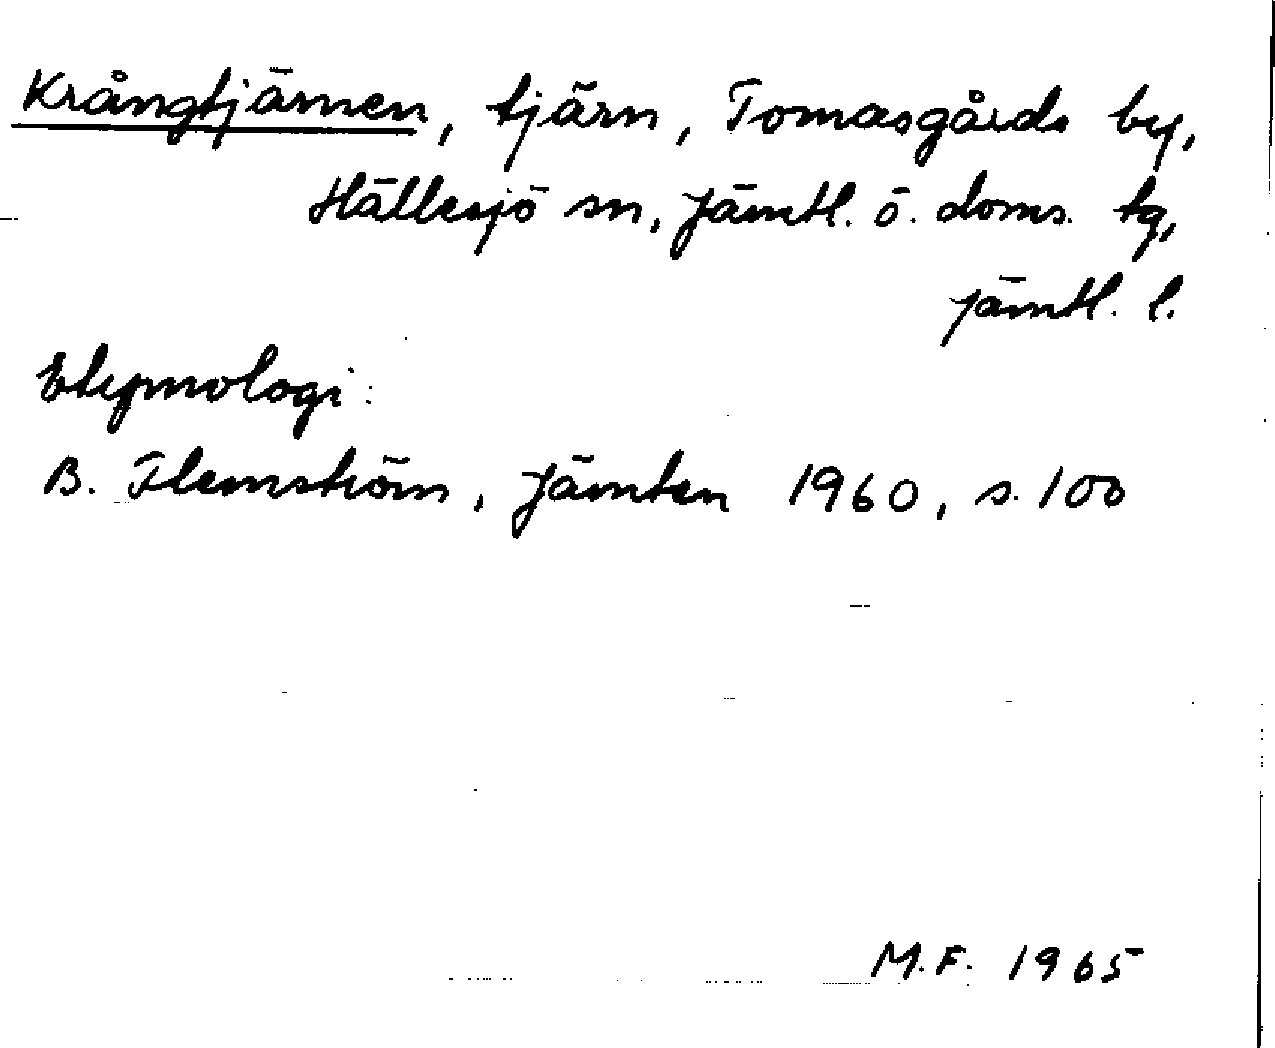 Krångtjärnen, tjärn, Tomasgårds by,
Hällesjö sn, Jämtl. ö. doms. tg,
Jämtl. l.
Etymologi:
B. Flemström, Jämten 1960, s. 100
M.F. 1965